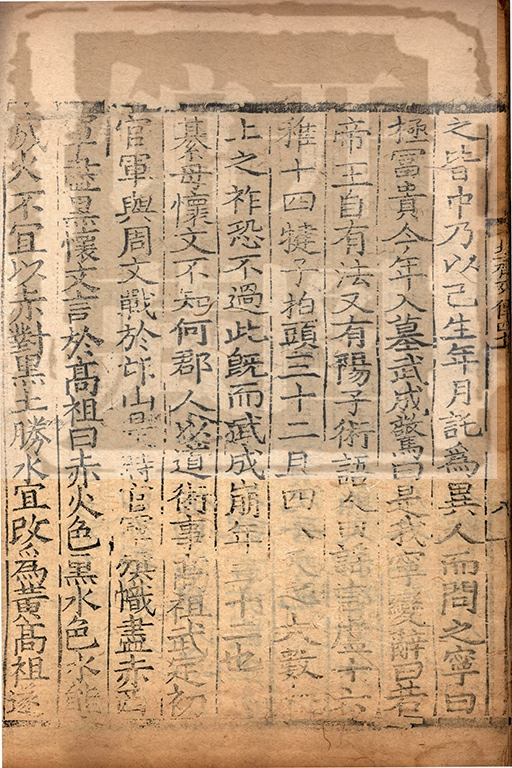 之皆中乃以己生年月託為異人而問之寧曰
極冨貴今年入墓武成驚曰是我寧變辭曰若
帝王自有法又有陽子術語人曰謠言盧十六
稚十四犍子拍頭三十二且四八天之大數
上之祚恐不過此旣而武成崩年三十二也
綦母懷文不知何郡人以道術事髙祖武定初
官軍與周文戰於邙山是時官軍旗幟盡赤西
軍盡黒懷文言於髙祖曰赤火色黒水色水能
滅火不宜以赤對黒土勝水宜改爲黄髙祖遂